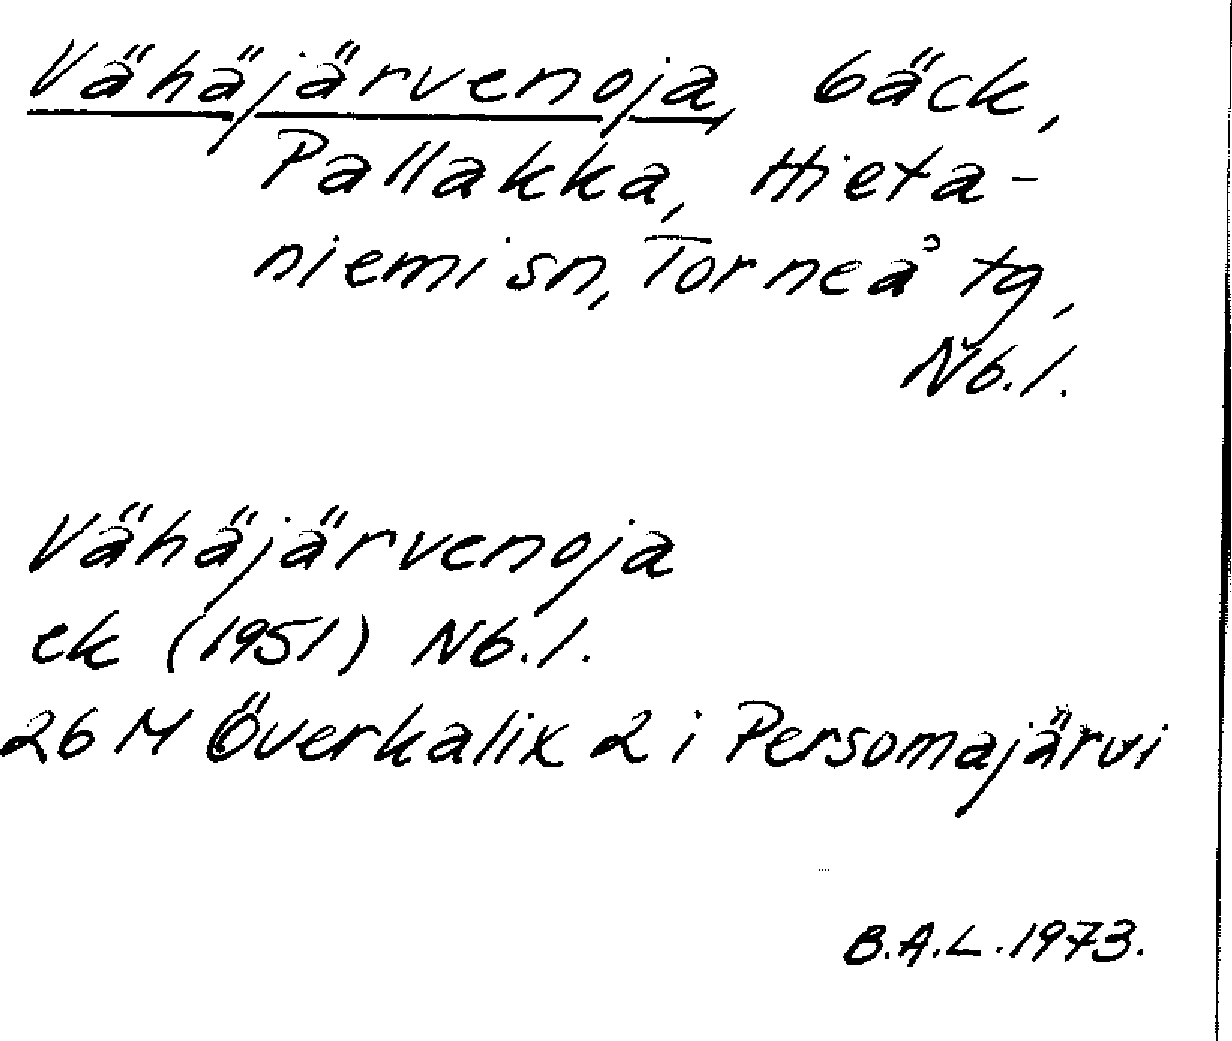 Vähäjärvenoja, bäck,
Pallakka, Hieta-
niemi sn, Torneå tg,
Nb. l.
Vähäjärvenoja
ek (1951) Nb. l.
26 M Överkalix 2 i Persomajärvi
B.A.L. 1973.